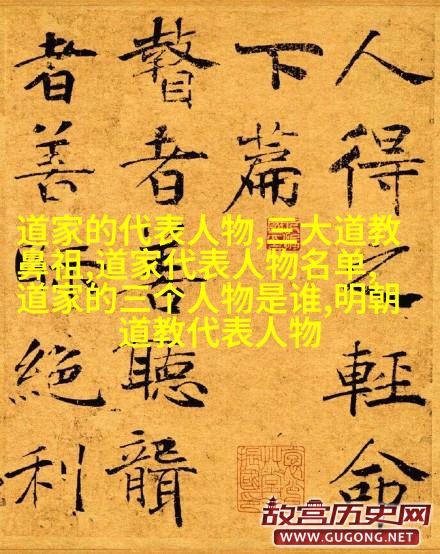 人得之輕命
下篇
瞽者善聽聾
者善絕利
道家的代表人物,三大道教
鼻祖,道家代表人物名单,
道家的三个人物是谁,明朝
道教代表人物
故宫历史网
WWW.GUGONG.NET